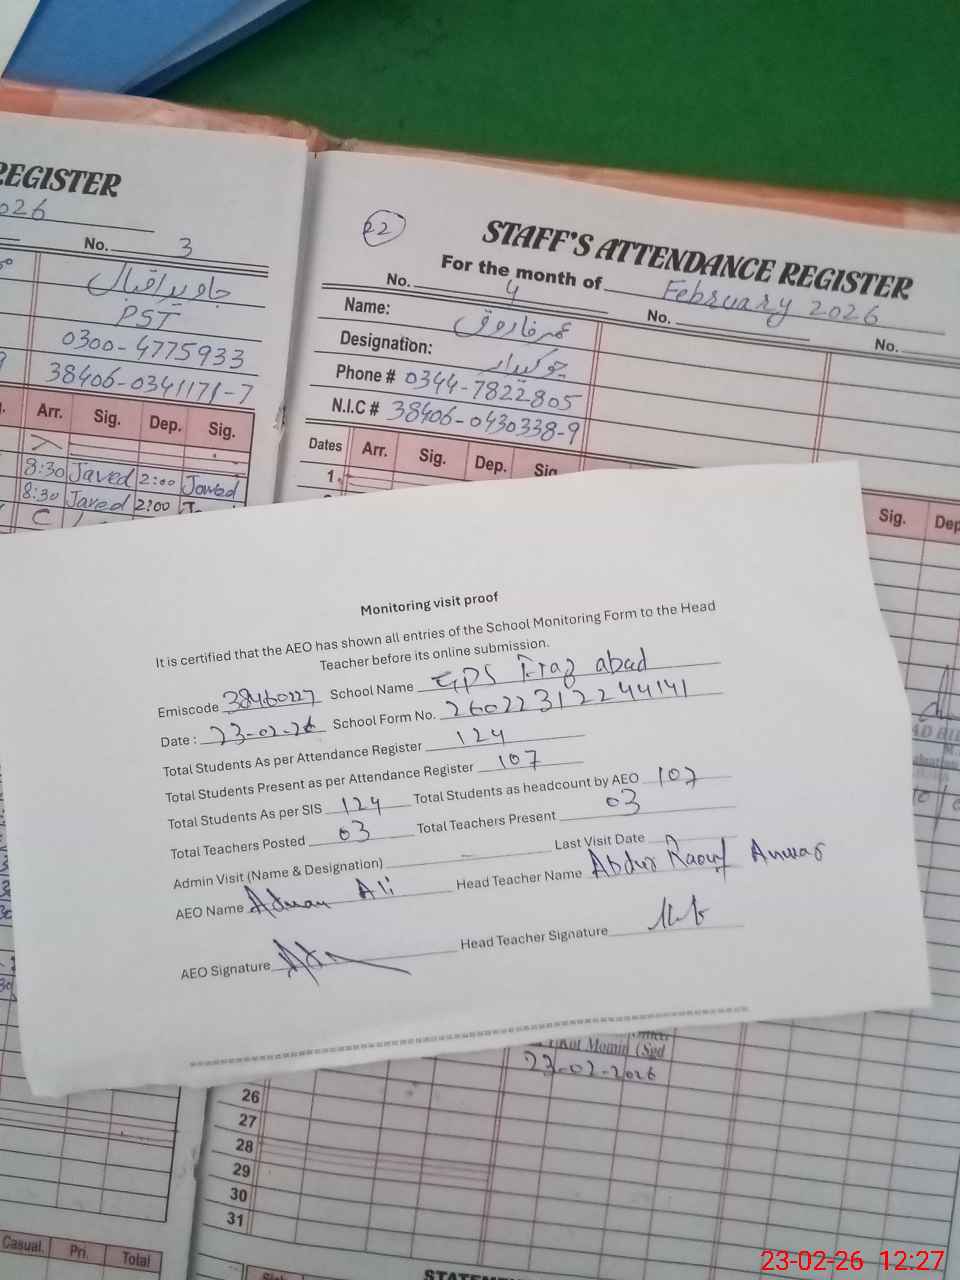 REGISTER
026
No. 3
جاوید اقبال
PST
0300-4775933
38406-0341171-7
Arr. Sig. Dep. Sig.
8:30 Javed 2:00 Javed
8:30 Javed 2:00
C
22
STAFF'S ATTENDANCE REGISTER
For the month of February 2026
No. 4 No. No.
Name: عمر فاروق
Designation: چوکیدار
Phone # 0344-7822805
N.I.C # 38406-0430338-9
Dates Arr. Sig. Dep. Sig
1
Sig. Dep
Monitoring visit proof
It is certified that the AEO has shown all entries of the School Monitoring Form to the Head
Teacher before its online submission.
Emiscode 38460227 School Name GPS Fraz abad
Date : 23-02-26 School Form No. 26022312244141
Total Students As per Attendance Register 124
Total Students Present as per Attendance Register 107
Total Students As per SIS 124 Total Students as headcount by AEO 107
Total Teachers Posted 03 Total Teachers Present 03
Admin Visit (Name & Designation) Last Visit Date
AEO Name Adnan Ali Head Teacher Name Abdur Raouf Anwar
AEO Signature Head Teacher Signature
Kot Momin (Sgd
23-02-2026
26
27
28
29
30
31
Casual. Pri. Total
STATEM
23-02-26 12:27